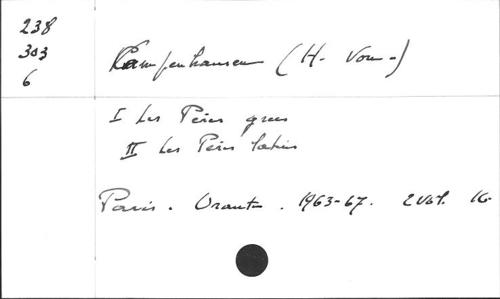 238
303
6
Campenhausen (H. von-)
I Les Pères grecs
II Les Pères latins
Paris. Orante. 1963-67. 2 vol. 16